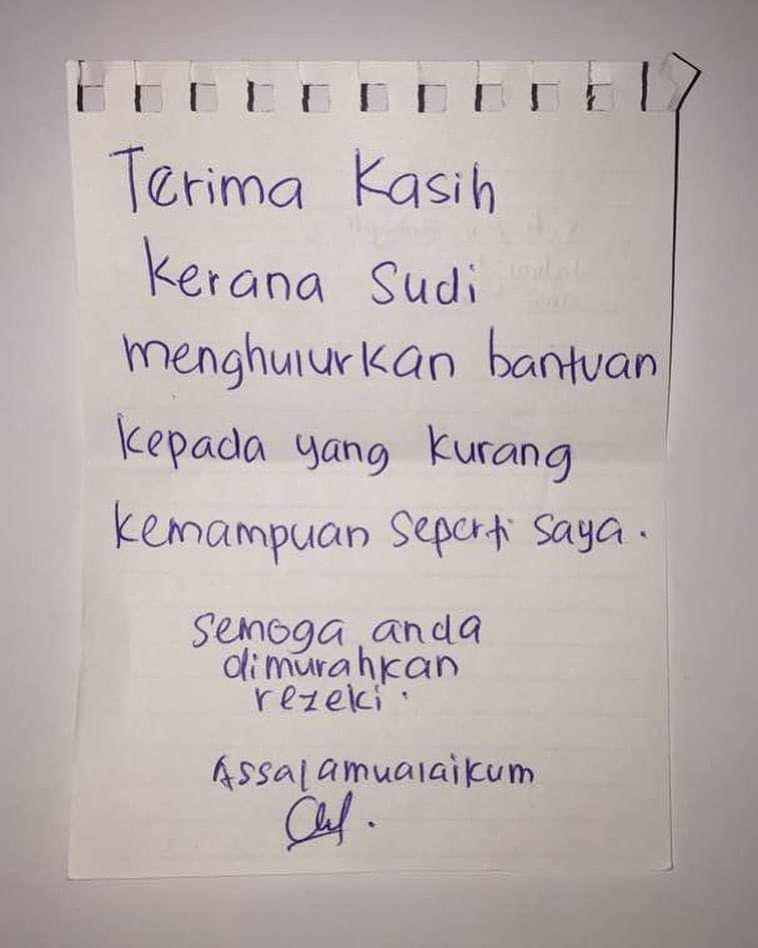 Terima Kasih
Kerana Sudi
menghulurkan bantuan
kepada yang kurang
kemampuan seperti saya.
Semoga anda
dimurahkan
rezeki.
Assalamualaikum